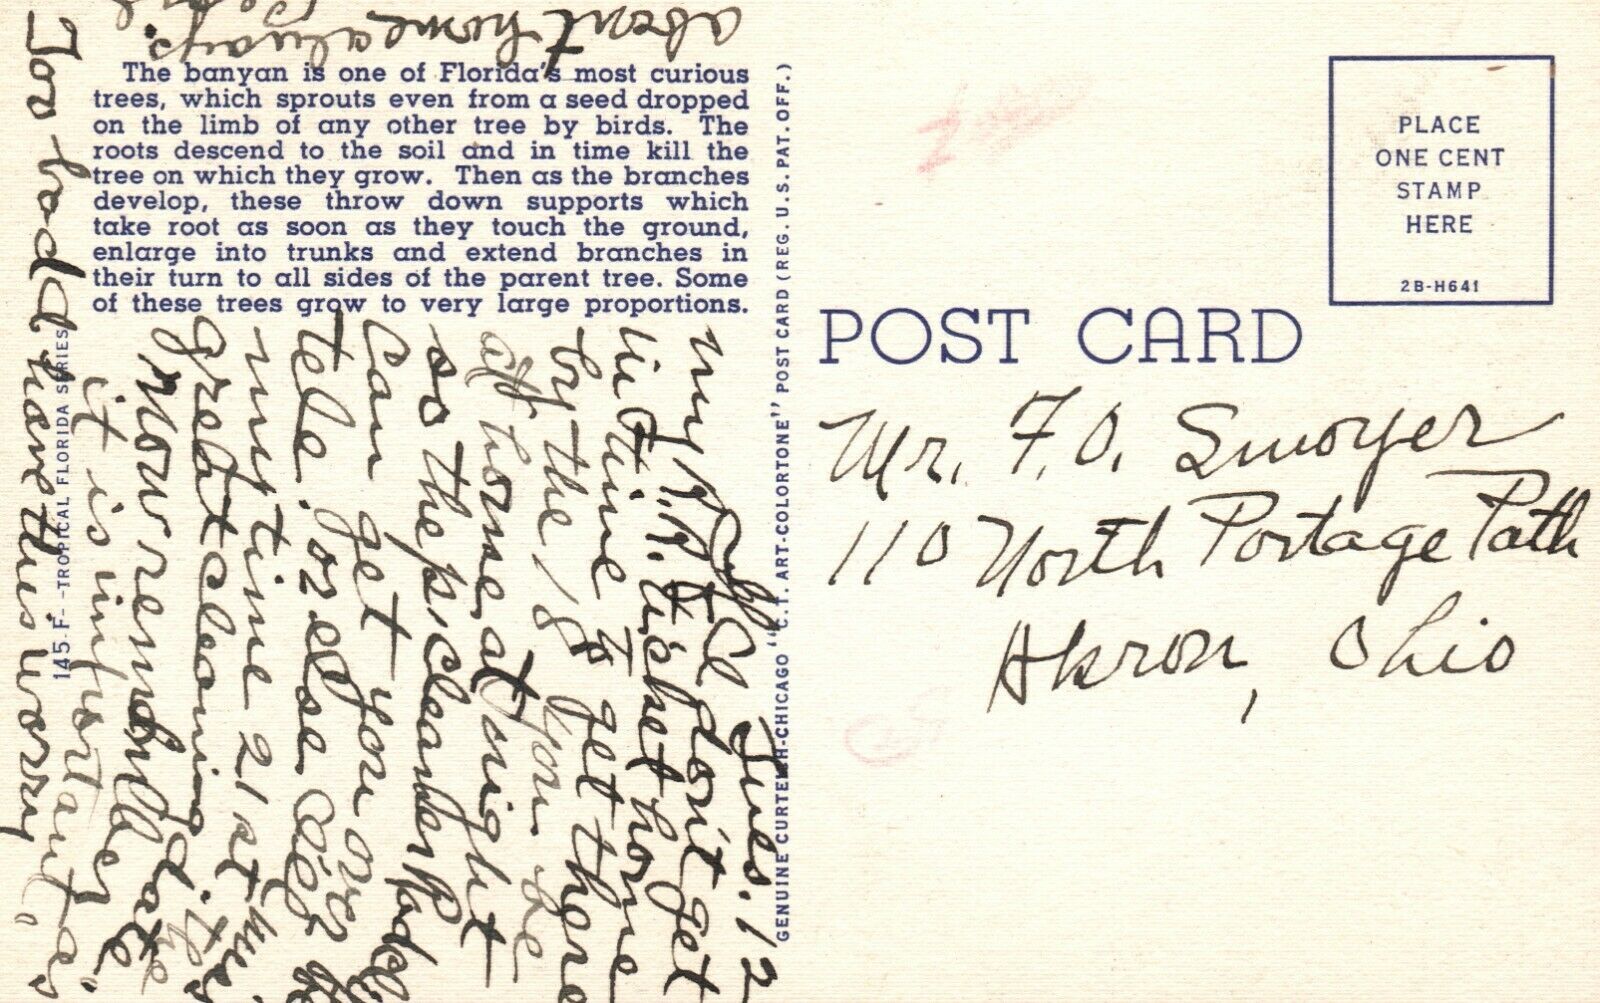 The banyan is one of Florida's most curious
trees, which sprouts even from a seed dropped
on the limb of any other tree by birds. The
roots descend to the soil and in time kill the
tree on which they grow. Then as the branches
develop, these throw down supports which
take root as soon as they touch the ground,
enlarge into trunks and extend branches in
their turn to all sides of the parent tree. Some
of these trees grow to very large proportions.
145 F--TROPICAL FLORIDA SERIES
GENUINE CURTEICH-CHICAGO "C.T. ART-COLORTONE" POST CARD (REG. U.S. PAT. OFF.)
PLACE
ONE CENT
STAMP
HERE
2B-H641
POST CARD
Mr. F. O. Smoyer
110 North Portage Path
Akron, Ohio
Tues. 12
If I don't get
my R.R. ticket home
in time to get there
by the 18 you be
at home at night
so the p. cleaner
can get you over
tele. or else
my time 21st
great cleaning date.
Now remember the
it is important, as
Too bad have this worry
about home always.